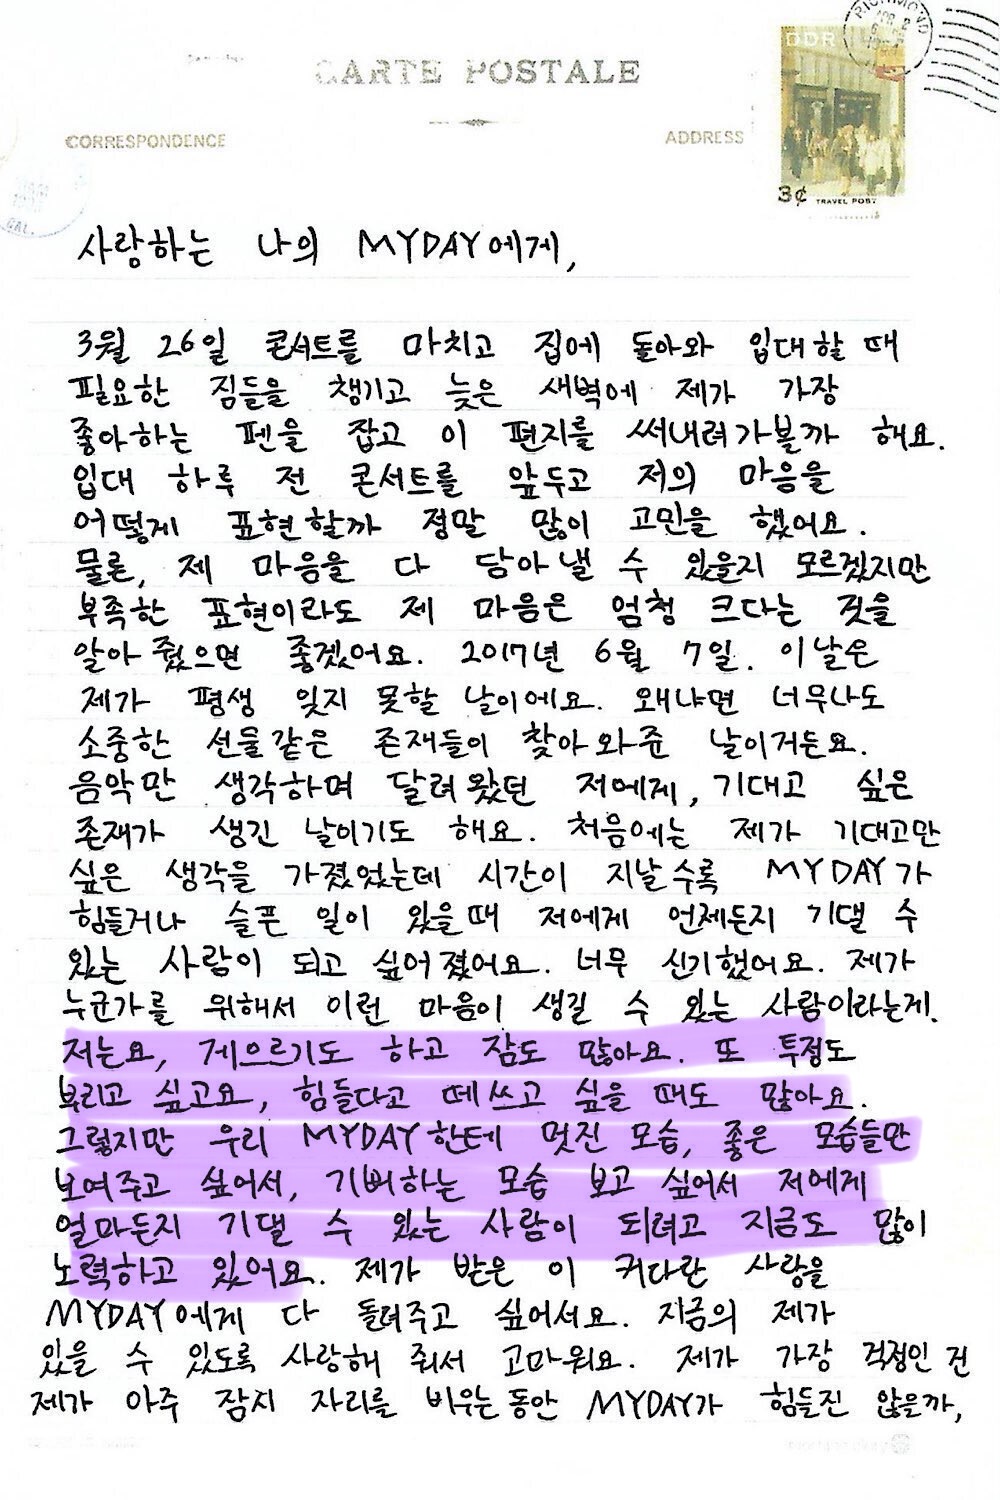 RICHMOND
DDR
CARTE POSTALE
CORRESPONDENCE
ADDRESS
3¢ TRAVEL POST
CAL.
사랑하는 나의 MYDAY에게,
3월 26일 콘서트를 마치고 집에 돌아와 입대할 때
필요한 짐들을 챙기고 늦은 새벽에 제가 가장
좋아하는 펜을 잡고 이 편지를 써내려가볼까 해요.
입대 하루 전 콘서트를 앞두고 저의 마음을
어떻게 표현할까 정말 많이 고민을 했어요.
물론, 제 마음을 다 담아낼 수 있을지 모르겠지만
부족한 표현이라도 제 마음은 엄청 크다는 것을
알아 줬으면 좋겠어요. 2017년 6월 7일. 이날은
제가 평생 잊지 못할 날이에요. 왜냐면 너무나도
소중한 선물같은 존재들이 찾아와준 날이거든요.
음악만 생각하며 달려왔던 저에게, 기대고 싶은
존재가 생긴 날이기도 해요. 처음에는 제가 기대고만
싶은 생각을 가졌었는데 시간이 지날수록 MYDAY가
힘들거나 슬픈 일이 있을때 저에게 언제든지 기댈 수
있는 사람이 되고 싶어졌어요. 너무 신기했어요. 제가
누군가를 위해서 이런 마음이 생길 수 있는 사람이라는게.
저는요, 게으르기도 하고 잠도 많아요. 또 투정도
부리고 싶고요, 힘들다고 떼쓰고 싶을 때도 많아요.
그렇지만 우리 MYDAY한테 멋진 모습, 좋은 모습들만
보여주고 싶어서, 기뻐하는 모습 보고 싶어서 저에게
얼마든지 기댈 수 있는 사람이 되려고 지금도 많이
노력하고 있어요. 제가 받은 이 커다란 사랑을
MYDAY에게 다 돌려주고 싶어서요. 지금의 제가
있을 수 있도록 사랑해 줘서 고마워요. 제가 가장 걱정인 건
제가 아주 잠시 자리를 비우는동안 MYDAY가 힘들진 않을까,